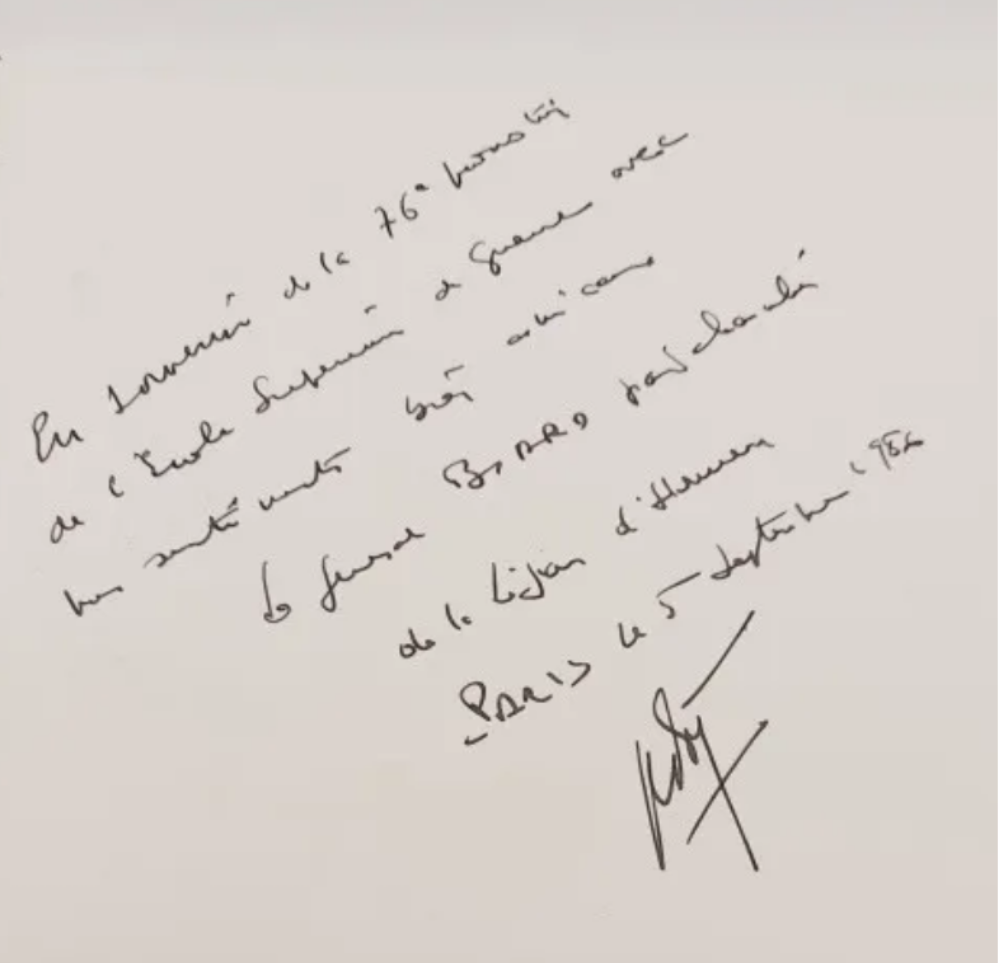 En souvenir de la 76e promotion
de l'École Supérieure de Guerre avec
mes sentiments très amicaux
Le général BIARD grand chancelier
de la Légion d'Honneur
PARIS le 5 septembre